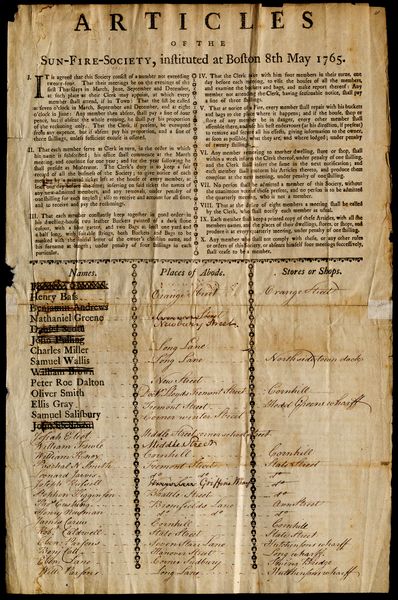 ARTICLES
OF THE
SUN-FIRE-SOCIETY, instituted at Boston 8th May 1765.
I. IT is agreed that this Society consist of a number not exceeding
twenty-four. That their meetings be on the evenings of the
first Thursdays in March, June, September and December,
at such place as their Clerk may appoint, at which every
member shall attend, if in Town: That the list be called
at seven o'clock in March, September and December, and at eight
o'clock in June: Any member then absent, shall pay a fine of four
pence, but if absent the whole evening, he shall pay his proportion
of the reckoning: the Clerk, if present, be absent
from any expence, but if absent pay his proportion, and a fine of
three shillings, unless sufficient notice is allowed.
II. That each member serve as Clerk in turn, in the order in which
his name is subscribed; his office shall commence at the March
meeting, and continue for one year; and for the year following, he
shall preside as Moderator. The Clerk's duty is to keep a fair
record of all the business of the Society; to give notice of each
meeting
one day before the time; inserting on said ticket the names of
any new-elected members, and any removals, under penalty of
one shilling for each neglect; also to receive and account for all fines,
and to receive and pay the reckonings.
III. That each member constantly keep together in good order in
his dwelling-house, two leather Buckets painted of a dark stone
colour, with a four
a half long, with suitable strings, both Buckets and Bags to be
marked with the initial letter of the owner's christian name, and
his surname at length; under penalty of four shillings in each
particular.
IV. That the Clerk take with him four members in their turns, one
day before each meeting, to visit the houses of all the members,
and examine the buckets and bags, and make report thereof: Any
member not attending the Clerk, having seasonable notice, shall pay
a fine of three shillings.
V. That at notice of a Fire, every member shall repair with his buckets
and bags to the place where it happens; and if the house, store or
shop of any member be in danger, every other member shall
assemble there, and use his best endeavours (at his direction if present)
to remove and secure all his effects, giving information to the owner,
as soon as possible, what they are; and where lodged; under penalty
of twenty shillings.
VI. Any member removing to another dwelling, store or shop, shall
within a week inform the Clerk thereof, under penalty of one shilling,
and the Clerk shall insert the same in the next notification; and
each member shall conform his Articles thereto, and produce them
compleat at the next meeting, under penalty of one shilling.
VII. No person shall be admitted a member of this Society, without
the unanimous vote of those present, and no person is to be admitted
the quarterly meeting, who is not a member.
VIII. That at the desire of eight members a meeting shall be called
by the Clerk, who shall notify each member as usual.
IX. Each member shall keep a printed copy of these Articles, with all the
members names, and the places of their dwellings, stores, or shops, and
produce it at every quarterly meeting under penalty of one shilling.
X. Any member who shall not comply with these, or any other rules
or orders of this Society, or absents himself four meetings successively,
shall cease to be a member.
Names. Places of Abode. Stores or Shops.
Henry Bass Orange Street Orange Street
Benjamin Andrews
Nathaniel Greene Newbury Street
Daniel Scott
John Pulling
Charles Miller Long Lane
Samuel Wallis Long Lane North side town dock
William Brown
Peter Roe Dalton New Street
Oliver Smith Tremont Street Cornhill
Ellis Gray Tremont Street Greens wharff
Samuel Salisbury Corner winter Street
Josiah Eliot Middle Street corner
William Fowle Middle Street
William Henry Cornhill Cornhill
N Smith Tremont Street State Street
Leonard Jarvis do do
Joseph Russell Griffins Wharf do
Stephen Higginson Brattle Street do
Thos Cushing Bromfields Lane Ann Street
Henry do do
James Carter Cornhill Cornhill
Robt Caldwell State Street State Street
Eben Parsons Seven Star Lane Hutchinsons wharff
Benj Call Hanover Street Long wharff
Eben Lane Corner Sudbury
Will Parsons Long Lane Hutchinsons wharff